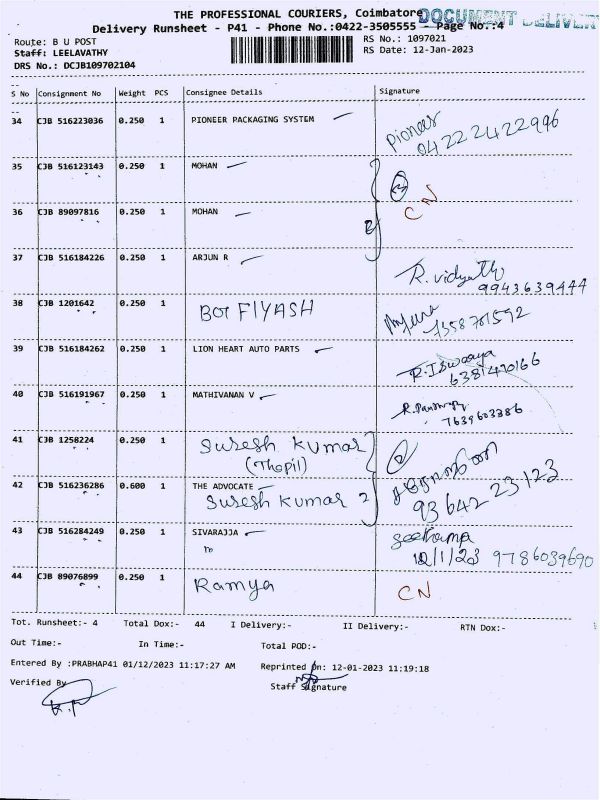 THE PROFESSIONAL COURIERS, Coimbatore DOCUMENT DELIVERY
Delivery Runsheet - P41 - Phone No.:0422-3505555 Page No.:4
Route: B U POST RS No.: 1097021
Staff: LEELAVATHY RS Date: 12-Jan-2023
DRS No.: DCJB109702104
S No Consignment No Weight PCS Consignee Details Signature
34 CJB 516223036 0.250 1 PIONEER PACKAGING SYSTEM Pioneer
0422 2422996
35 CJB 516123143 0.250 1 MOHAN
36 CJB 89097816 0.250 1 MOHAN CN
37 CJB 516184226 0.250 1 ARJUN R R. Vidyath
9943639444
38 CJB 1201642 0.250 1 BOT FIYASH
7358781592
39 CJB 516184262 0.250 1 LION HEART AUTO PARTS R. Iswaaya
6381470166
40 CJB 516191967 0.250 1 MATHIVANAN V
7639603386
41 CJB 1258224 0.250 1 Suresh Kumar
(Thopil)
42 CJB 516236286 0.600 1 THE ADVOCATE
Suresh Kumar 2 93642 23123
43 CJB 516284249 0.250 1 SIVARAJJA Seethama
12/1/23 9786039690
44 CJB 89076899 0.250 1 Ramya CN
Tot. Runsheet:- 4 Total Dox:- 44 I Delivery:- II Delivery:- RTN Dox:-
Out Time:- In Time:- Total POD:-
Entered By :PRABHAP41 01/12/2023 11:17:27 AM Reprinted On: 12-01-2023 11:19:18
Verified By Staff Signature
K.P